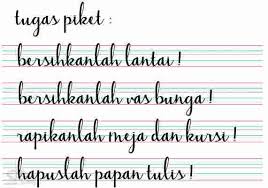 tugas piket :
bersihkanlah lantai !
bersihkanlah vas bunga !
rapikanlah meja dan kursi !
hapuslah papan tulis !